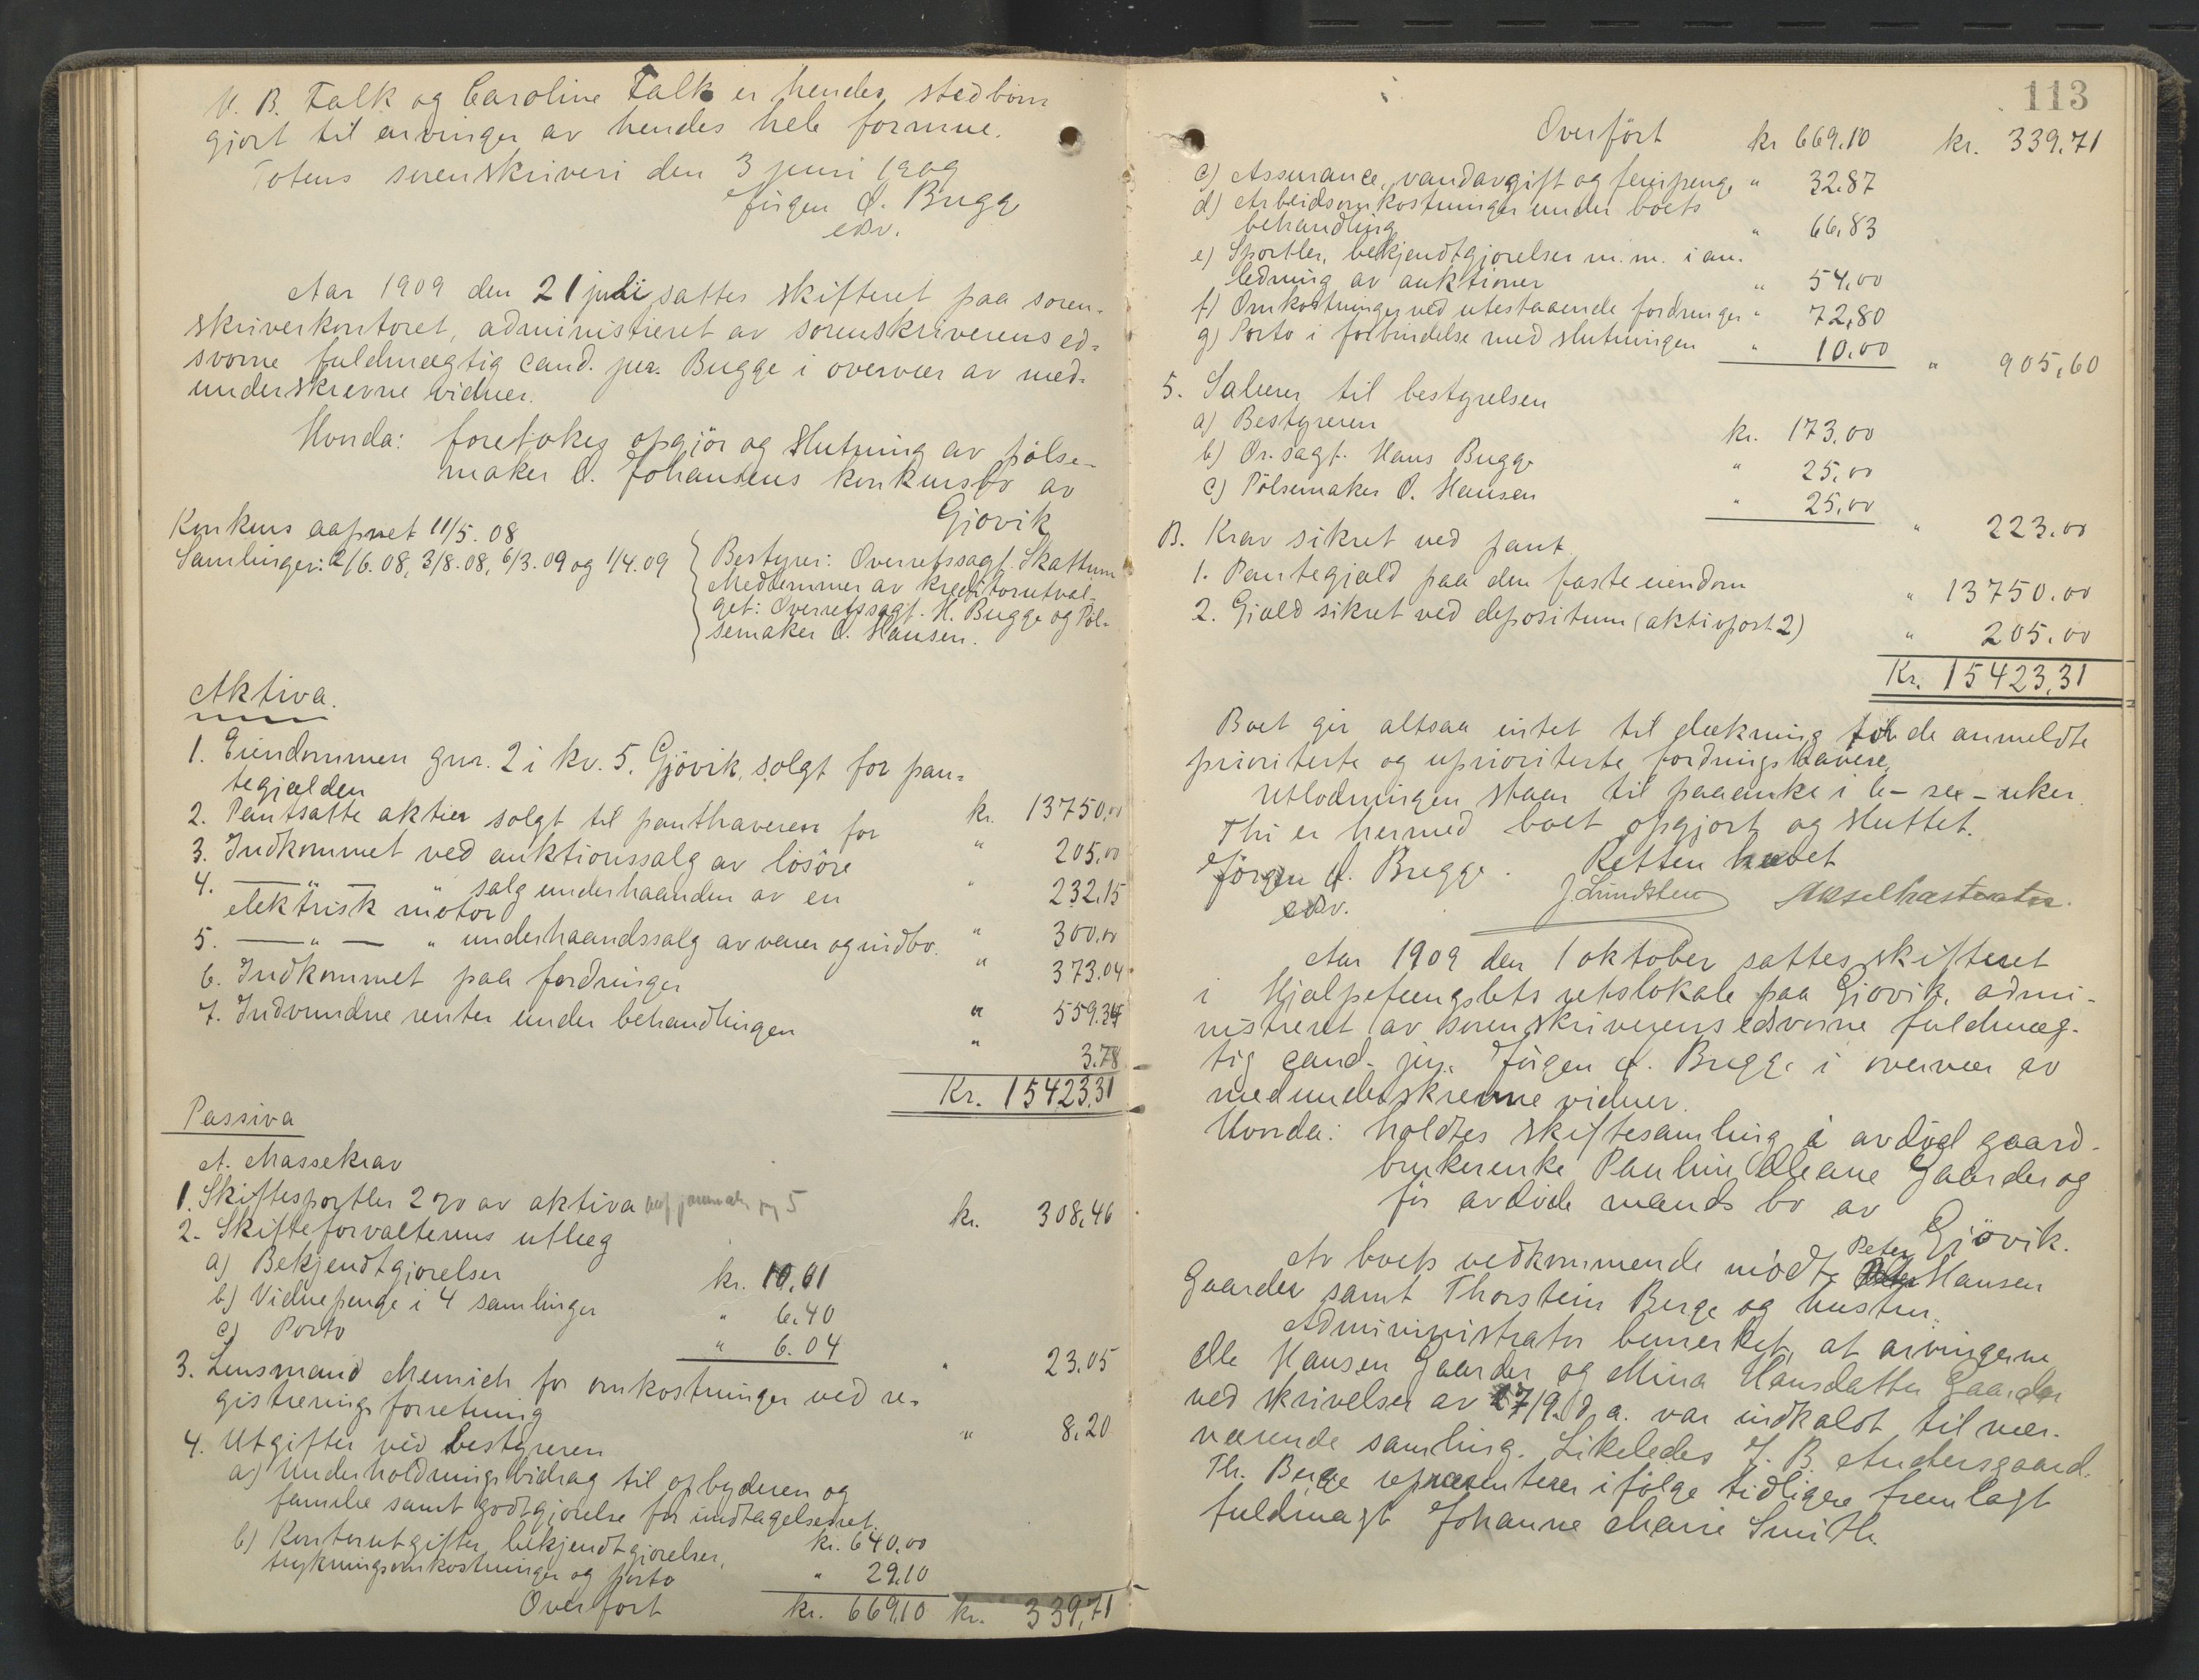 V. B. Falk og Caroline Falk er hendes stedbørn
gjort til arvinger av hendes hele formue.
Totens sorenskriveri den 3 juni 1909
Jørgen A. Bugge
edsv.
Aar 1909 den 21 juli sattes skifteret paa soren-
skriverkontoret, administreret av sorenskriverens ed-
svorne fuldmægtig cand. jur. Bugge i overvær av med-
underskrevne vidner.
Hvorda: foretokes opgjör og slutning av pölse-
maker O. Johansens konkursbo av
Gjövik
Konkurs aapnet 11/5. 08
Samlinger: 2/6. 08, 3/8. 08, 6/3. 09 og 1/4. 09
Bestyrer: Overretssagf. Skattum
Medlemmer av kreditorutval-
get: Overretssagf. H. Bugge og Pöl-
semaker O. Hansen.
Aktiva.
1. Eiendommen gnr. 2 i kv. 5. Gjövik, solgt for pan-
tegjælden kr. 13750,00
2. Pantsatte aktier solgt til panthaveren for " 205,00
3. Indkommet ved auktionssalg av lösöre " 232,15
4. — " — " salg underhaanden av en
elektrisk motor " 300,00
5. — " — " underhaandssalg av varer og indbo. " 373.04
6. Indkommet paa fordringer " 559.34
7. Indvundne renter under behandlingen " 3.78
Kr. 15423,31
Passiva
A. Massekrav
1. Skiftesportler 2 % av aktiva kr. 308,46
2. Skifteforvalterens utlæg
a) Bekjendtgjörelser kr. 10,61
b) Vidnepenge i 4 samlinger " 6.40
c) Porto " 6.04 " 23.05
3. Lensmand Memich for omkostninger ved re-
gistreringsforretning " 8.20
4. Utgifter ved bestyreren
a) Underholdningsbidrag til opbyderen og
familie samt godtgjörelse for indtagelsesret. kr. 640,00
b) Kontorutgifter, bekjendtgjörelser,
trykningsomkostninger og porto " 29.10
Overfört kr. 669,10 kr. 339,71
113
Overfört kr 669.10 kr. 339,71
c) Assurance, vandavgift og feiepenge " 32.87
d) Arbeidsomkostninger under boets
behandling " 66,83
e) Sportler, bekjendtgjörelser m.m. i an-
ledning av auktioner " 54,00
f) Omkostninger ved utestaaende fordringer " 72,80
g) Porto i forbindelse med slutningen " 10.00 " 905,60
5. Salærer til bestyrelsen
a) Bestyreren kr. 173,00
b) Or. sagf. Hans Bugge " 25,00
c) Pölsemaker O. Hansen " 25,00 " 223.00
B. Krav sikret ved pant
1. Pantegjæld paa den faste eiendom " 13750.00
2. Gjæld sikret ved depositum (aktivpost 2) " 205.00
Kr. 15423,31
Boet gir altsaa intet til dækning for de anmeldte
prioriterte og uprioriterte fordringshavere.
Utlodningen staar til paaanke i 6 – sex – uker.
Thi er hermed boet opgjort og sluttet.
Retten hævet
Jörgen A. Bugge.
edsv.
J. Lundsten
Aar 1909 den 1 oktober sattes skifteret
i Hjælpefængslets retslokale paa Gjövik, admi-
nistreret av sorenskriverens edsvorne fuldmæg-
tig cand. jur. Jörgen A. Bugge i overvær av
medunderskrevne vidner.
Hvorda: holdtes skiftesamling i avdöd gaard-
brukerenke Pauline Oleane Gaarder og
för avdöde mands bo av
Gjövik.
Av boets vedkommende mödte Peter Hansen
Gaarder samt Thorstein Berge og hustru.
Administrator bemerket, at arvingerne
Ole Hansen Gaarder og Mina Hansdatter Gaarder
ved skrivelser av 27/9. d. a. var indkaldt til nær-
værende samling. Likeledes J. B. Andersgaard.
Th. Berge repræsenterer ifölge tidligere fremlagt
fuldmagt Johanne Marie Smith.